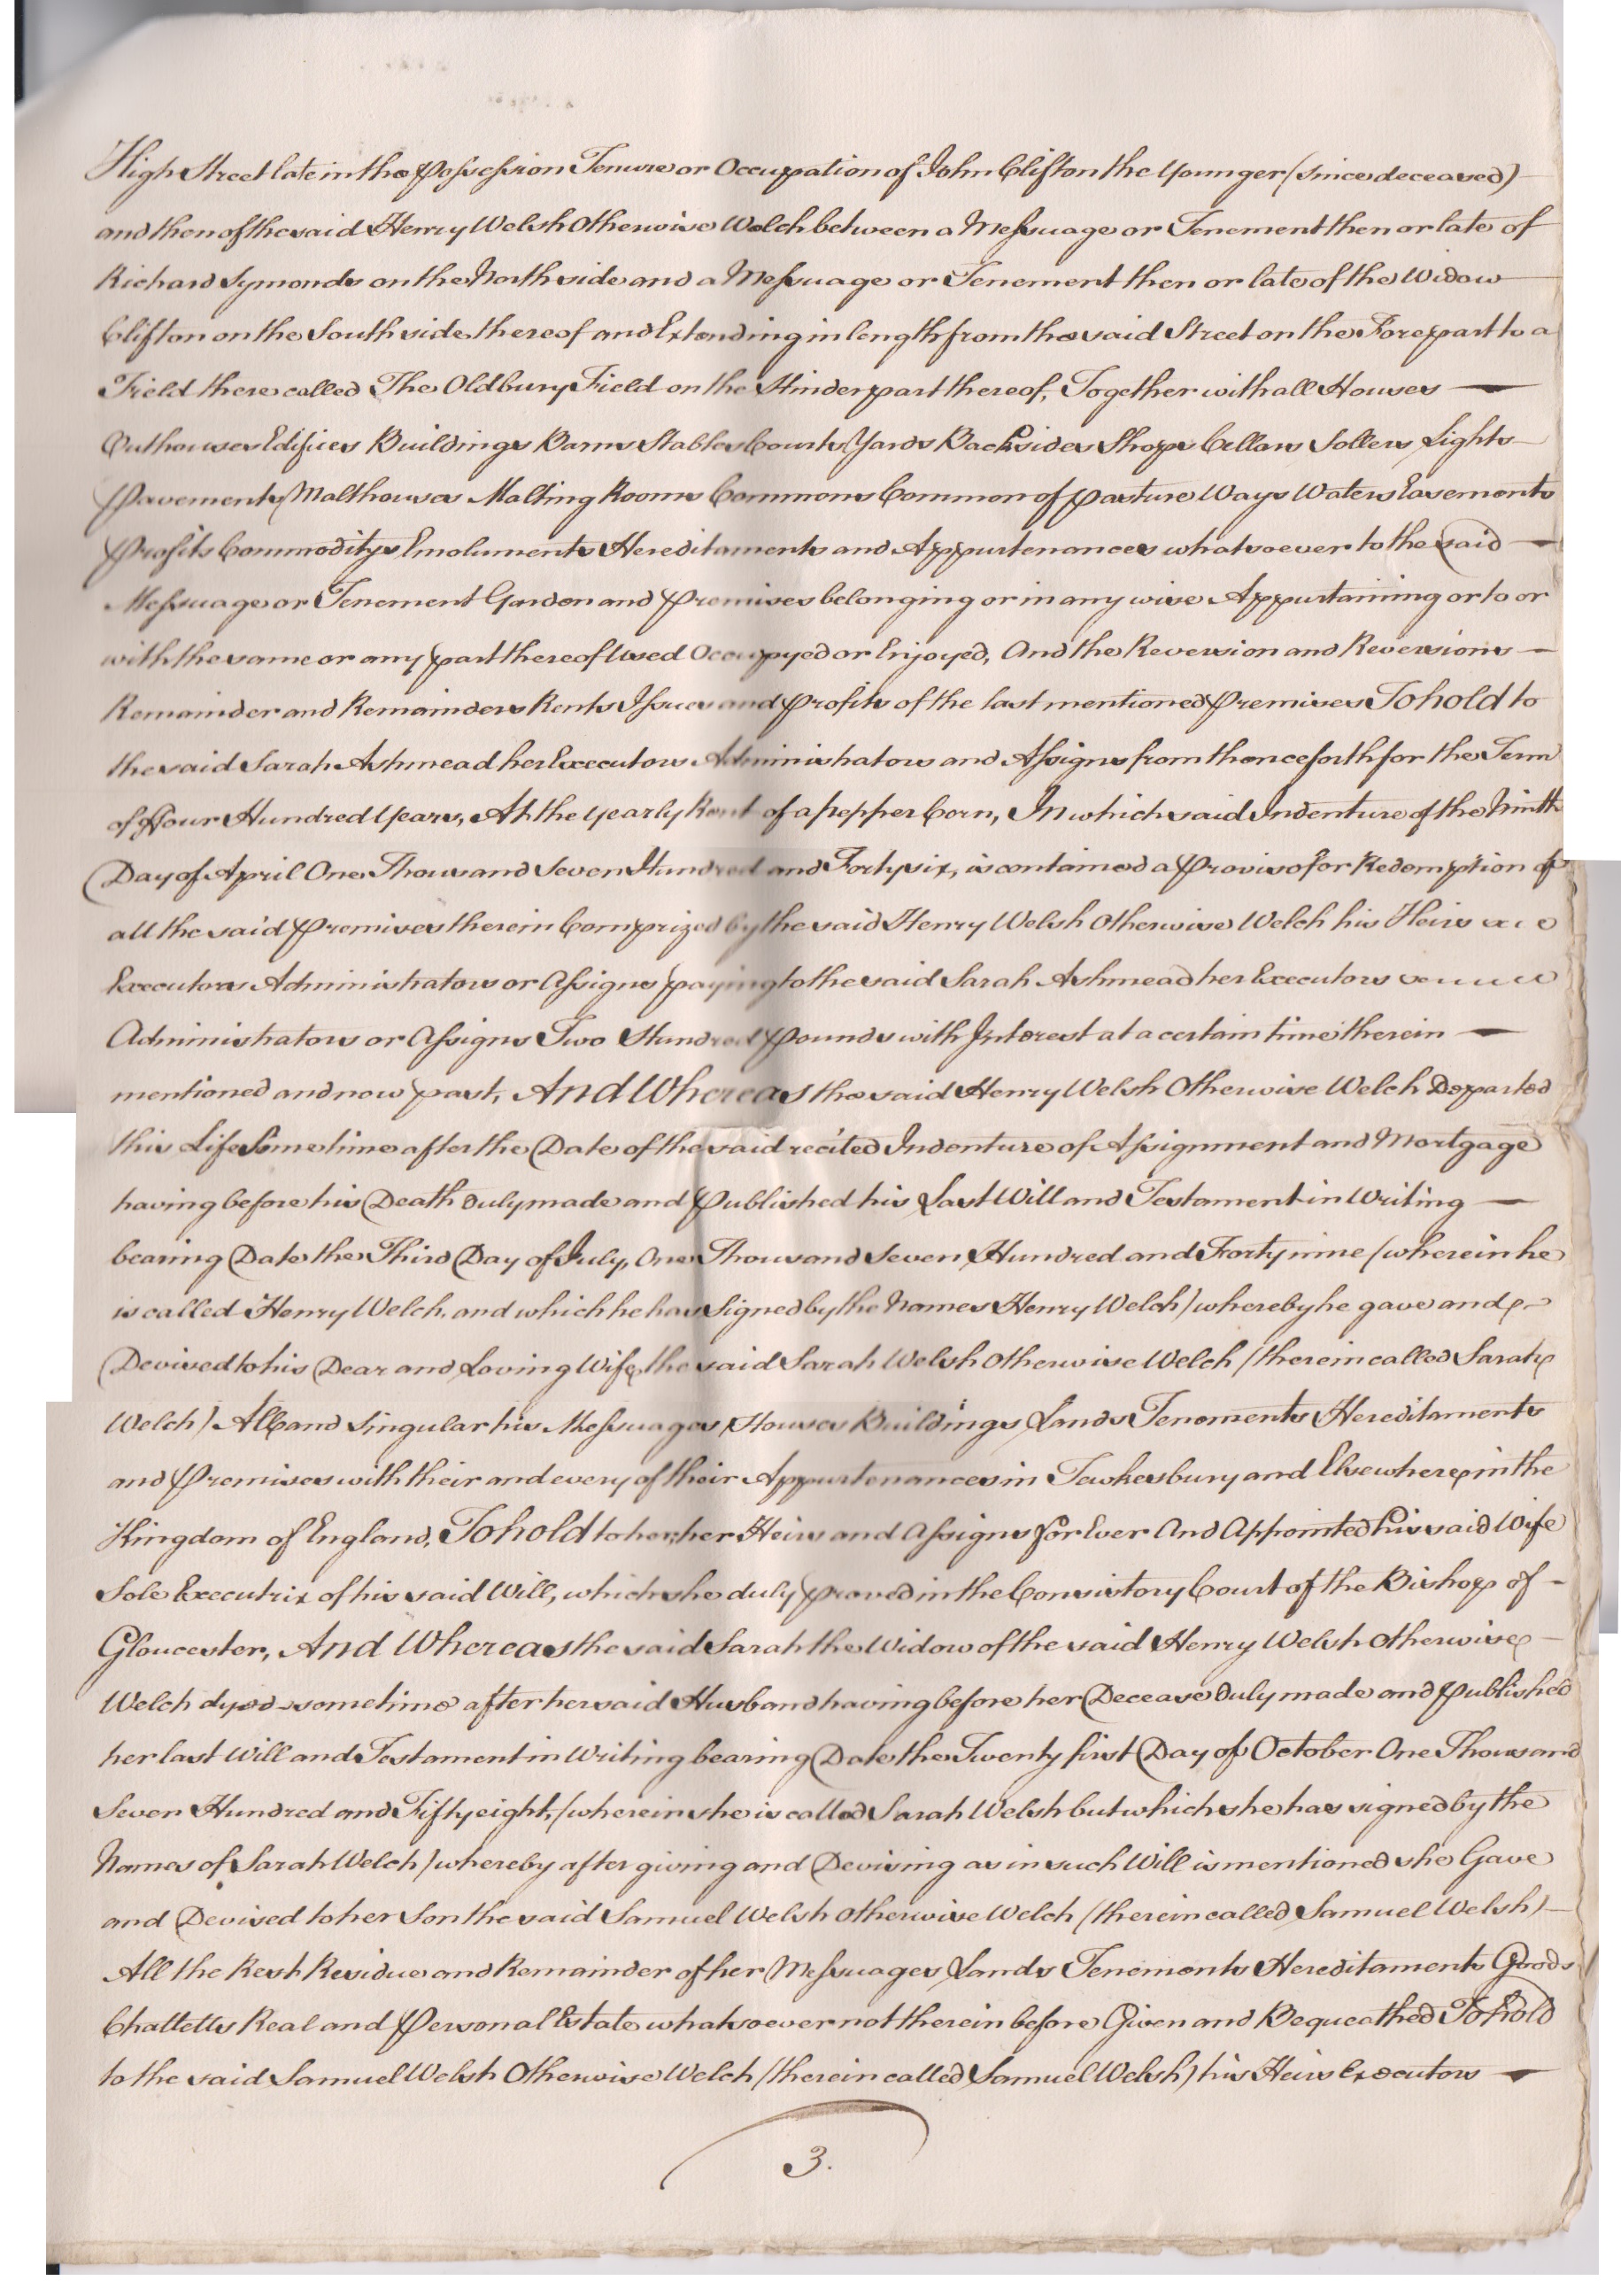 High Street late in the Possession Tenure or Occupation of John Clifton the Younger (since deceased)
and then of the said Henry Welsh Otherwise Welch between a Messuage or Tenement then or late of
Richard Symonds on the North side and a Messuage or Tenement then or late of the Widow
Clifton on the South side thereof and Extending in length from the said Street on the Forepart to a
Field there called The Oldbury Field on the Hinderpart thereof, Together with all Houses —
Outhouses Edifices Buildings Barns Stables Courts Yards Backsides Shops Cellars Sollers Lights
Pavements Malthouses Malting Rooms Commons Common of pasture Ways Waters Easements
Profits Commoditys Emoluments Hereditaments and Appurtenances whatsoever to the said —
Messuage or Tenement Garden and Premises belonging or in any wise Appurtaining or to or
with the same or any part thereof Used Occupyed or Enjoyed, And the Reversion and Reversions —
Remainder and Remainders Rents Issues and Profits of the last mentioned Premises To hold to
the said Sarah Ashmead her Executors Administrators and Assigns from thenceforth for the Term
of Four Hundred Years, At the Yearly Rent of a pepper Corn, In which said Indenture of the Ninth
Day of April One Thousand Seven Hundred and Forty six, is contained a Proviso for Redemption of
all the said Premises therein Comprized by the said Henry Welsh Otherwise Welch his Heirs
Executors Administrators or Assigns paying to the said Sarah Ashmead her Executors
Administrators or Assigns Two Hundred Pounds with Interest at a certain time therein —
mentioned and now past, And Whereas the said Henry Welsh Otherwise Welch Departed
this Life Sometime after the Date of the said recited Indenture of Assignment and Mortgage
having before his Death duly made and Published his Last Will and Testament in Writing —
bearing Date the Third Day of July, One Thousand Seven Hundred and Forty nine (wherein he
is called Henry Welch, and which he has Signed by the Names Henry Welch) whereby he gave and
Devised to his Dear and Loving Wife, the said Sarah Welsh Otherwise Welch (therein called Sarah
Welch) All and Singular his Messuages Houses Buildings Lands Tenements Hereditaments
and Premises with their and every of their Appurtenances in Tewkesbury and Elsewhere in the
Kingdom of England, To hold to her, her Heirs and Assigns for Ever And Appointed his said Wife
Sole Executrix of his said Will, which she duly proved in the Consistory Court of the Bishop of -
Gloucester, And Whereas the said Sarah the Widow of the said Henry Welsh Otherwise —
Welch dyed sometime after her said Husband having before her Decease duly made and Published
her last Will and Testament in Writing bearing Date the Twenty first Day of October One Thousand
Seven Hundred and Fifty eight, (wherein she is called Sarah Welsh but which she has signed by the
Names of Sarah Welch) whereby after giving and Devising as in such Will is mentioned she Gave
and Devised to her Son the said Samuel Welsh Otherwise Welch (therein called Samuel Welsh) —
All the Rest Residue and Remainder of her Messuages Lands Tenements Hereditaments Goods
Chattells Real and Personal Estate whatsoever not therein before Given and Bequeathed To hold
to the said Samuel Welsh Otherwise Welch (therein called Samuel Welsh) his Heirs Executors —
3.